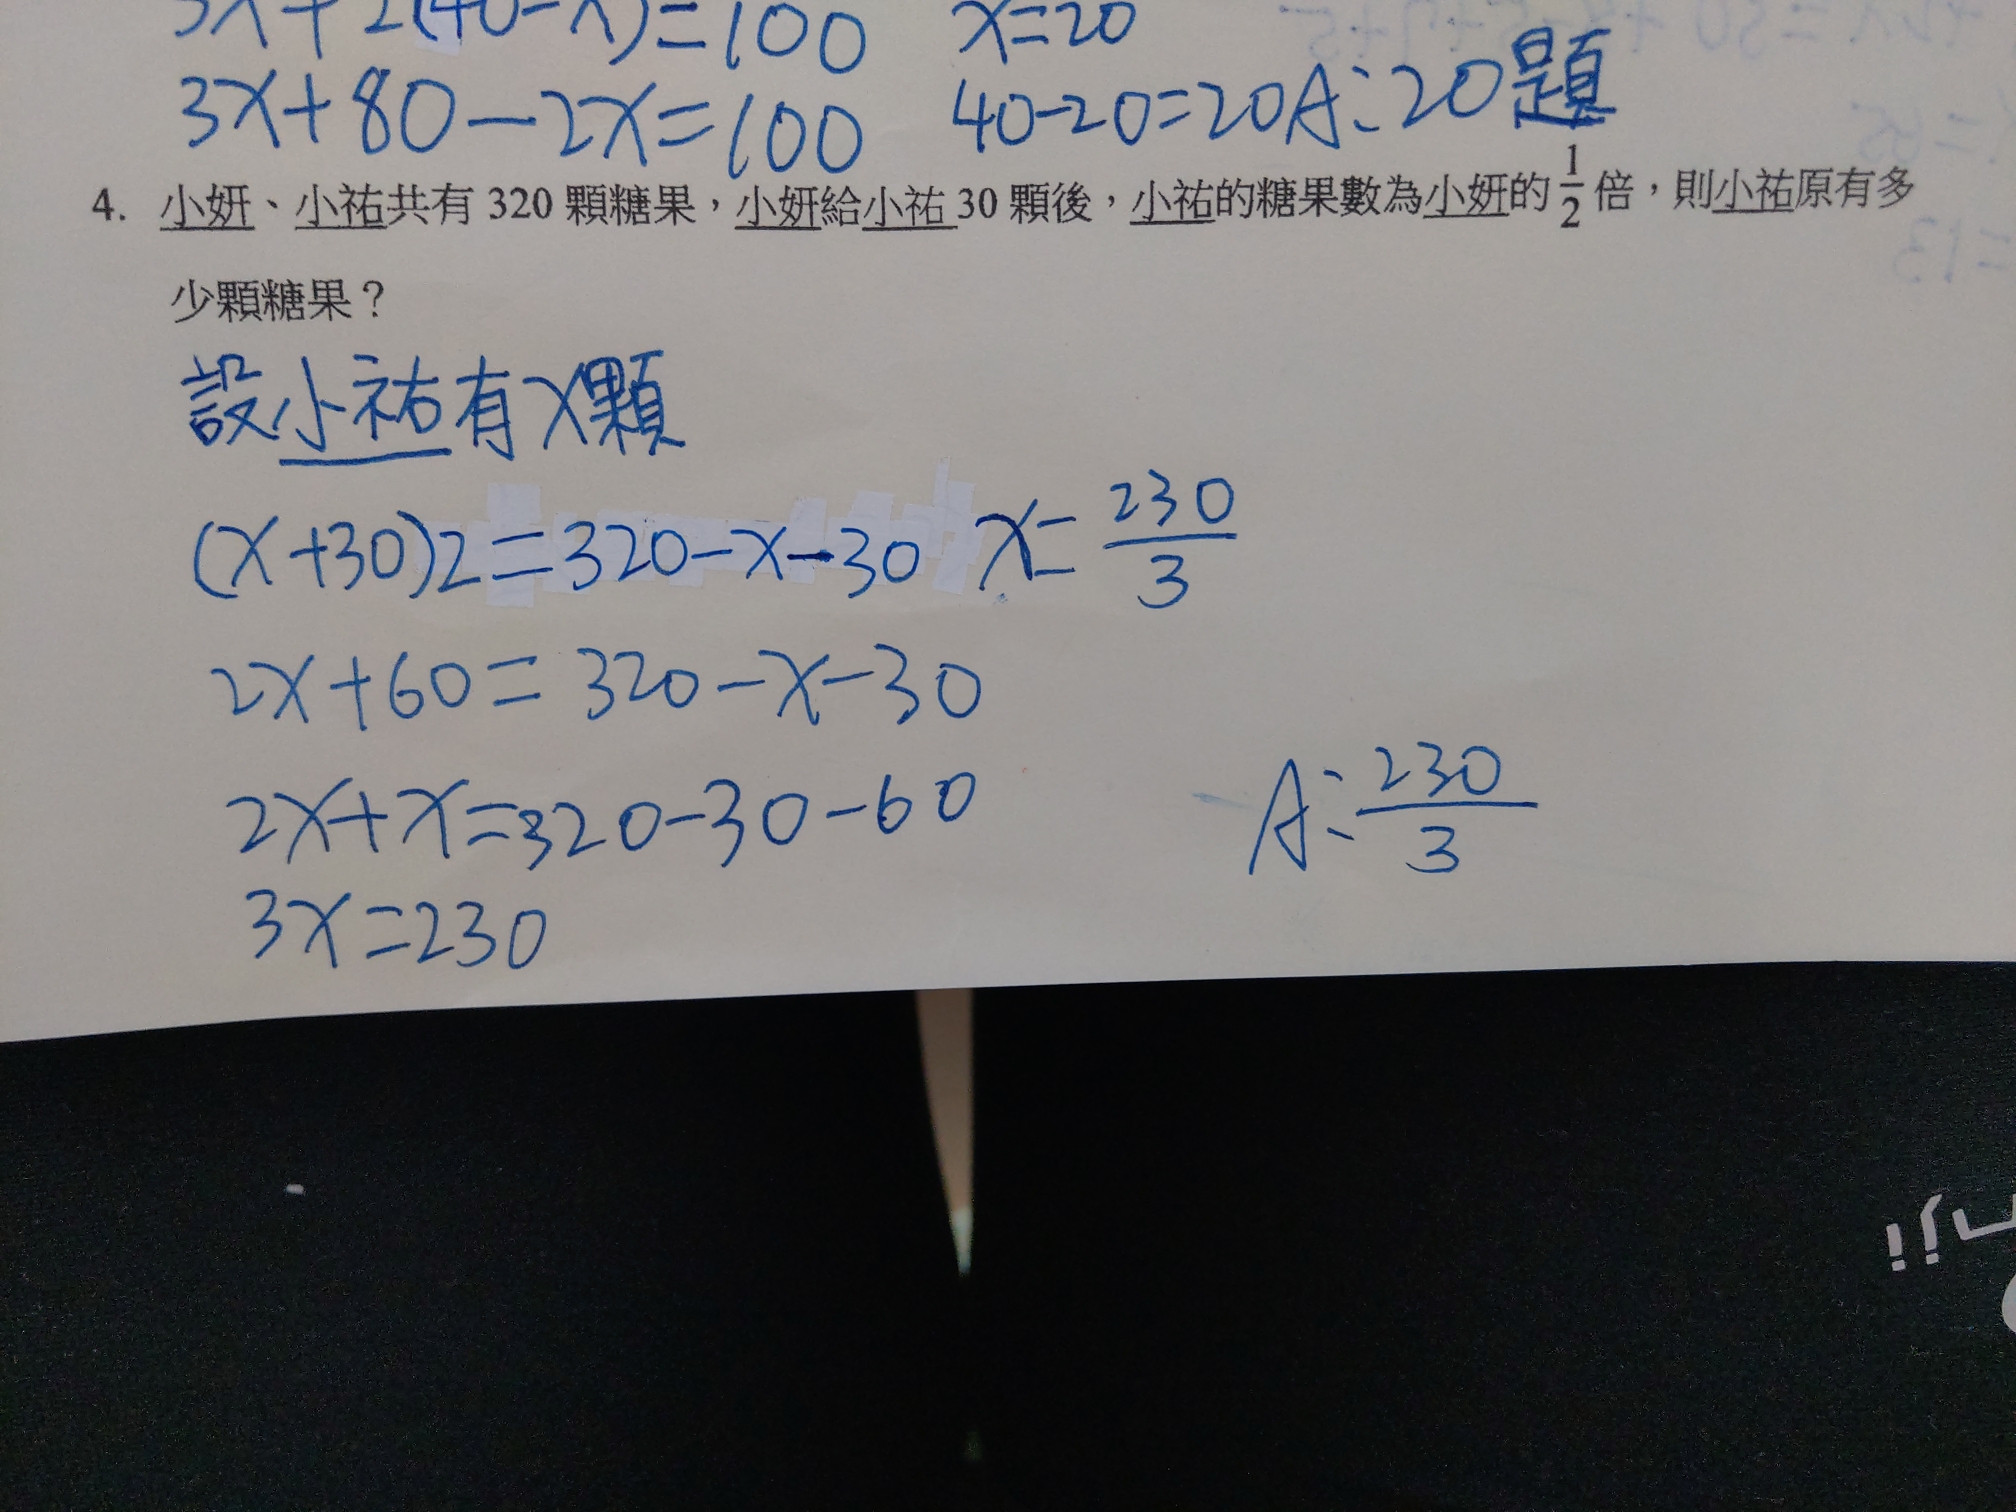 3x+2(40-x)=100 x=20
3x+80-2x=100 40-20=20 A:20題
4. 小妍、小祐共有 320 顆糖果，小妍給小祐 30 顆後，小祐的糖果數為小妍的 1/2 倍，則小祐原有多
少顆糖果？
設小祐有x顆
(x+30)2=320-x-30 x=230/3
2x+60=320-x-30
2x+x=320-30-60
3x=230
A:230/3